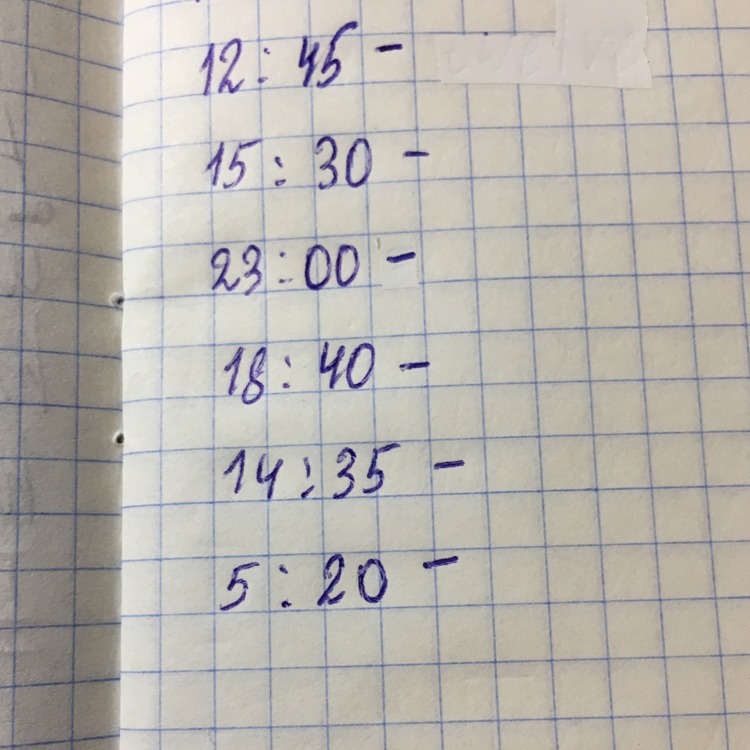 12 : 45 -
15 : 30 -
23 : 00 -
18 : 40 -
14 : 35 -
5 : 20 -